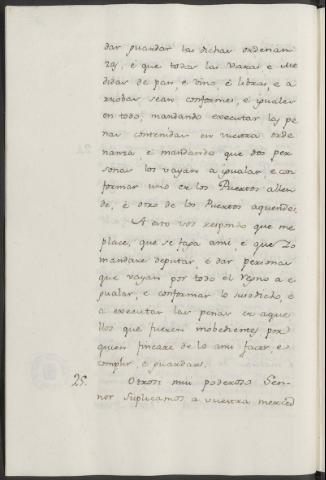 dar guardar las dichas ordenan
zas, é que todas las varas e Me
didas de pan, e vino, é libras, e a
rrobas sean conformes, e yguales
en todo, mandando executar las pe
nas contenidas en vuestra orde
nanza, é mandando que dos per
sonas los vayan a ygualar, e con
formar uno en los Puertos allen
de, é otro de los Puertos aquende.
A esto vos respondo que me
place, que se faga ansi, é que Yo
mandare deputar é dar personas
que vayan por todo el Reyno a e
gualar, e conformar lo susodicho, é
a executar las penas en aque
llos que fueren inobedientes, por
quien fincare de lo ansi facer, e
complir, é guardar.
25. Otrosi mui poderoso Sen
nor suplicamos a vuestra merced